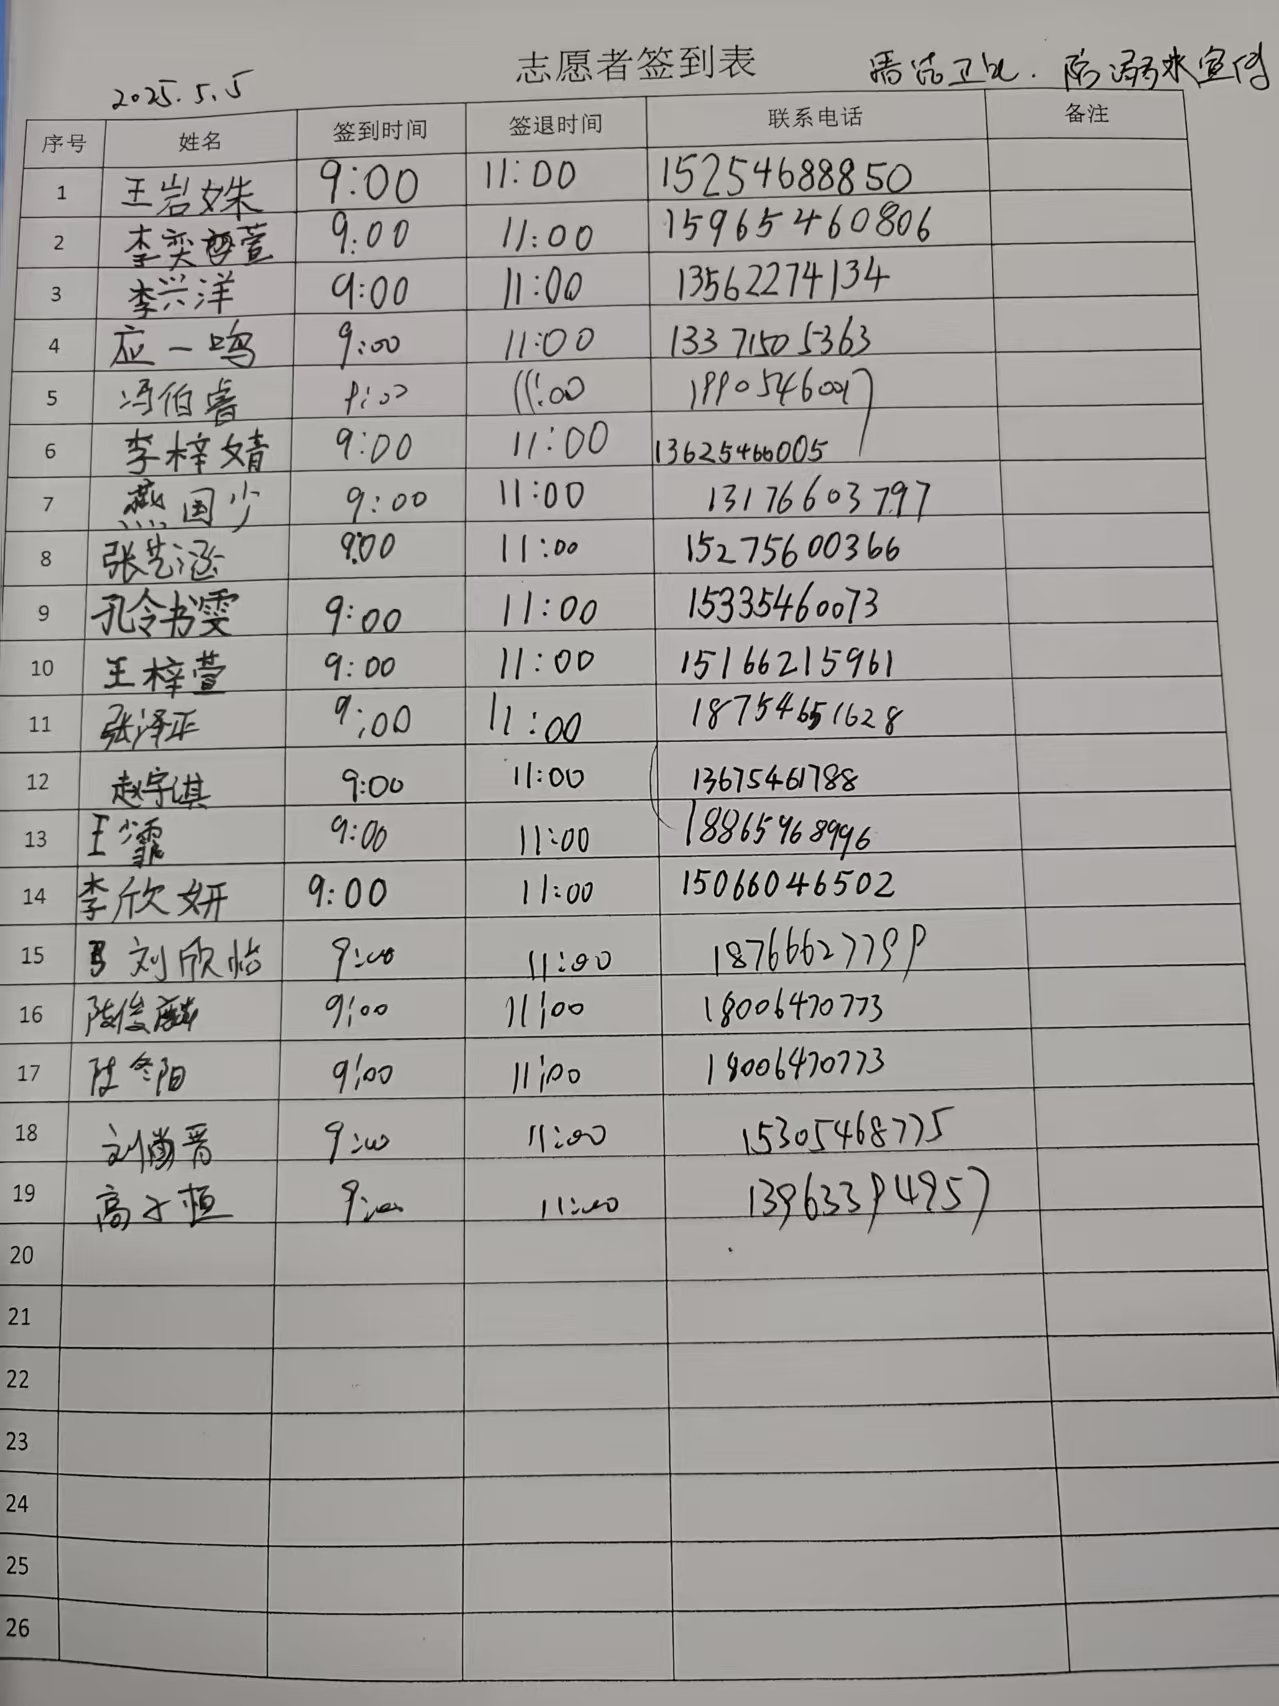 志愿者签到表
2025.5.5 防溺水宣传
序号 姓名 签到时间 签退时间 联系电话 备注
1 王岩姝 9:00 11:00 15254688850
2 李奕萱 9:00 11:00 15965460806
3 李兴洋 9:00 11:00 13562274134
4 应一鸣 9:00 11:00 13371505363
5 冯伯睿 9:00 11:00 19905460017
6 李梓婧 9:00 11:00 13625466005
7 燕国少 9:00 11:00 13176603797
8 张艺涵 9:00 11:00 15275600366
9 孔令书雯 9:00 11:00 15335460073
10 王梓萱 9:00 11:00 15166215961
11 张泽正 9:00 11:00 18754651628
12 赵宇淇 9:00 11:00 13675461788
13 王少霏 9:00 11:00 18865968996
14 李欣妍 9:00 11:00 15066046502
15 刘欣怡 9:00 11:00 18766627799
16 陈俊麟 9:00 11:00 18006470773
17 陈冬阳 9:00 11:00 18006470773
18 刘尚晋 9:00 11:00 15305468775
19 高子恒 9:00 11:00 13963394957
20
21
22
23
24
25
26